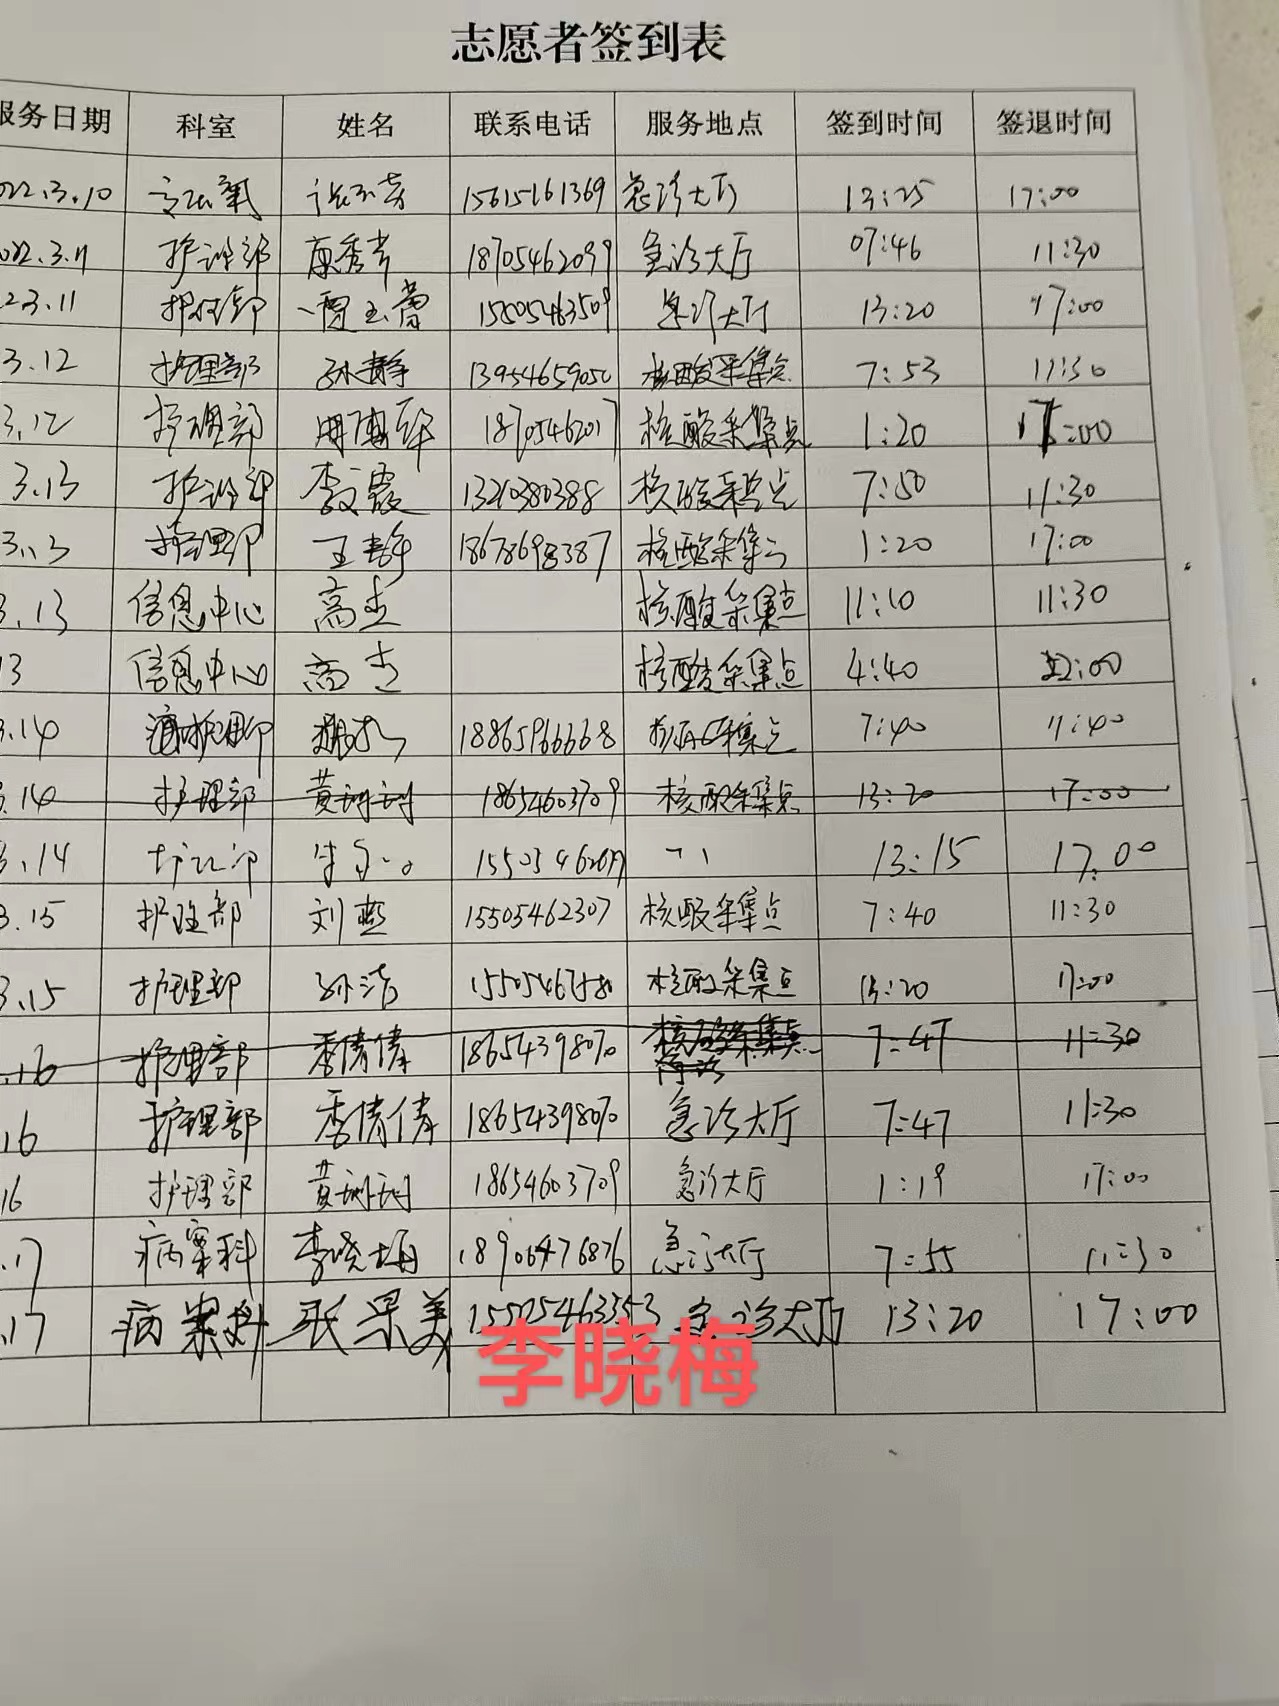 志愿者签到表
服务日期 科室 姓名 联系电话 服务地点 签到时间 签退时间
022.3.10 15615161369 急诊大厅 13:25 17:00
022.3.11 护理部 康秀 18705462099 急诊大厅 07:46 11:30
23.11 护理部 贾玉蕾 15505463509 急诊大厅 13:20 17:00
3.12 护理部 孙静 1395465905 核酸采集点 7:53 11:30
3.12 护理部 1870546201 核酸采集点 1:20 17:00
3.13 护理部 李文霞 1321038 388 核酸采集点 7:50 11:30
3.13 护理部 王静 18678698387 核酸采集点 1:20 17:00
3.13 信息中心 高杰 核酸采集点 11:10 11:30
13 信息中心 高杰 核酸采集点 4:40 22:00
3.14 护理部 18865966668 核酸采集点 7:40 11:40
3.14 护理部 黄珊珊 18654603709 核酸采集点 13:20 17:00
3.14 护理部 13:15 17:00
3.15 护理部 刘燕 15505462307 核酸采集点 7:40 11:30
3.15 护理部 孙洁 核酸采集点 13:20 17:00
.16 护理部 季倩倩 18654398070 核酸采集点 7:47 11:30
16 护理部 季倩倩 18654398070 急诊大厅 7:47 11:30
16 护理部 黄珊珊 18654603709 急诊大厅 1:19 17:00
.17 病案科 李晓梅 18906476876 急诊大厅 7:55 11:30
.17 病案科 张景美 15505463353 急诊大厅 13:20 17:00
李晓梅